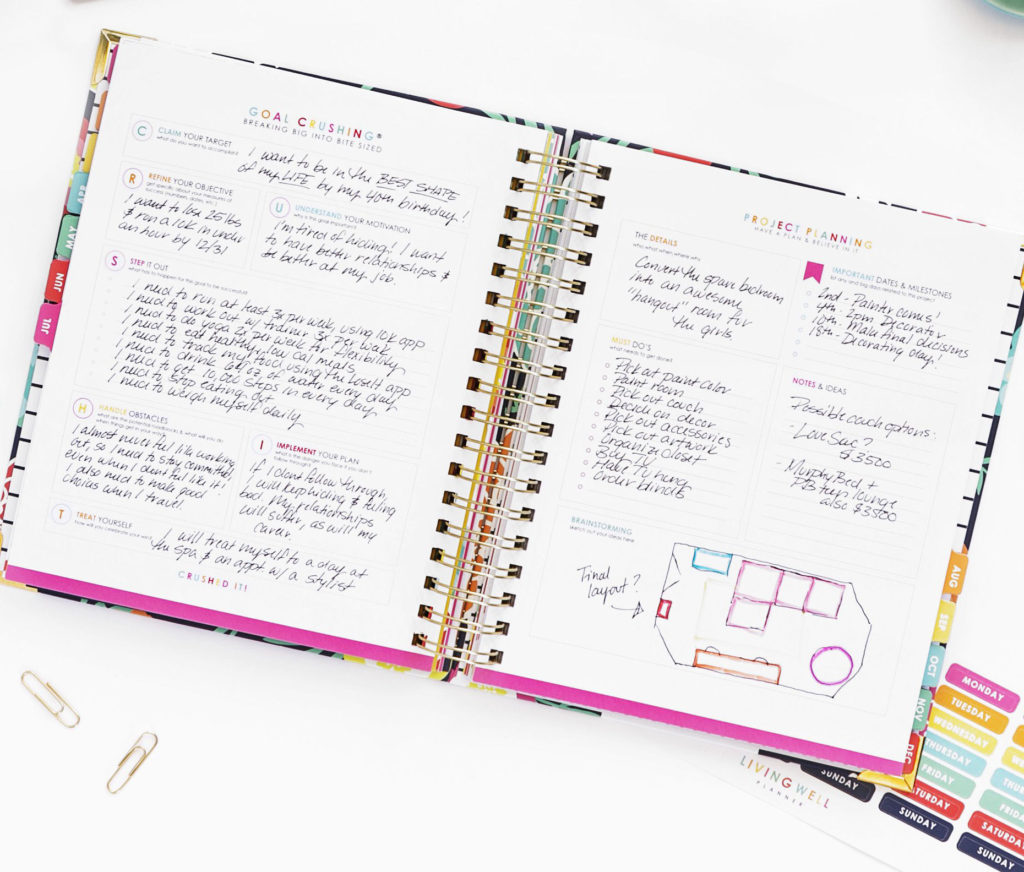 GOAL CRUSHING®
BREAKING BIG INTO BITE SIZED
C
CLAIM YOUR TARGET
what do you want to accomplish?
I want to be in the BEST SHAPE
of my LIFE by my 40th birthday!
R
REFINE YOUR OBJECTIVE
get specific about your measures of
success (numbers, dates, etc.)
I want to lose 25 lbs
& run a 10k in under
an hour by 12/31
U
UNDERSTAND YOUR MOTIVATION
why is this goal important?
I'm tired of hiding! I want
to have better relationships &
be better at my job.
S
STEP IT OUT
what has to happen for this goal to be successful?
I need to run at least 3x per week, using 10k app
I need to work out w/ trainer 3x per week
I need to do yoga 2x per week for flexibility
I need to eat healthy, low cal meals
I need to track my food using the LoseIt app
I need to drink 64 oz of water every day
I need to get 10,000 steps in every day
I need to stop eating out
I need to weigh myself daily
H
HANDLE OBSTACLES
what are the potential roadblocks & what will you do
when things get in your way?
I almost never feel like working
out, so I need to stay committed,
even when I don't feel like it!
I also need to make good
choices when I travel.
I
IMPLEMENT YOUR PLAN
what is the danger you face if you don't
follow through?
If I don't follow through,
I will keep hiding & feeling
bad. My relationships
will suffer, as will my
career.
T
TREAT YOURSELF
how will you celebrate your win?
I will treat myself to a day at
the spa & an appt w/ a stylist
CRUSHED IT!
APR
MAY
JUN
JUL
PROJECT PLANNING
HAVE A PLAN & BELIEVE IN IT
THE DETAILS
who what when where why
Convert the spare bedroom
into an awesome
"hangout" room for
the girls
IMPORTANT DATES & MILESTONES
list any and big dates related to this project
2nd - Painter comes!
9th - 2pm Decorator
- Make final decisions
18th - Decorating day!
MUST DO'S
what needs to get done?
Pick out paint color
Paint room
Pick out couch
Decide on decor
Pick out accessories
Pick out artwork
Organize closet
Buy TV
Have TV hung
Order blinds
NOTES & IDEAS
Possible couch options:
- Love Sac?
$3500
- Murphy Bed +
PB teen lounge
also $3500
BRAINSTORMING
sketch out your ideas here
Final
layout?
AUG
SEP
OCT
NOV
DEC
MONDAY
TUESDAY
WEDNESDAY
THURSDAY
FRIDAY
SATURDAY
SUNDAY
SUNDAY
SATURDAY
SUNDAY
LIVING WELL
PLANNER